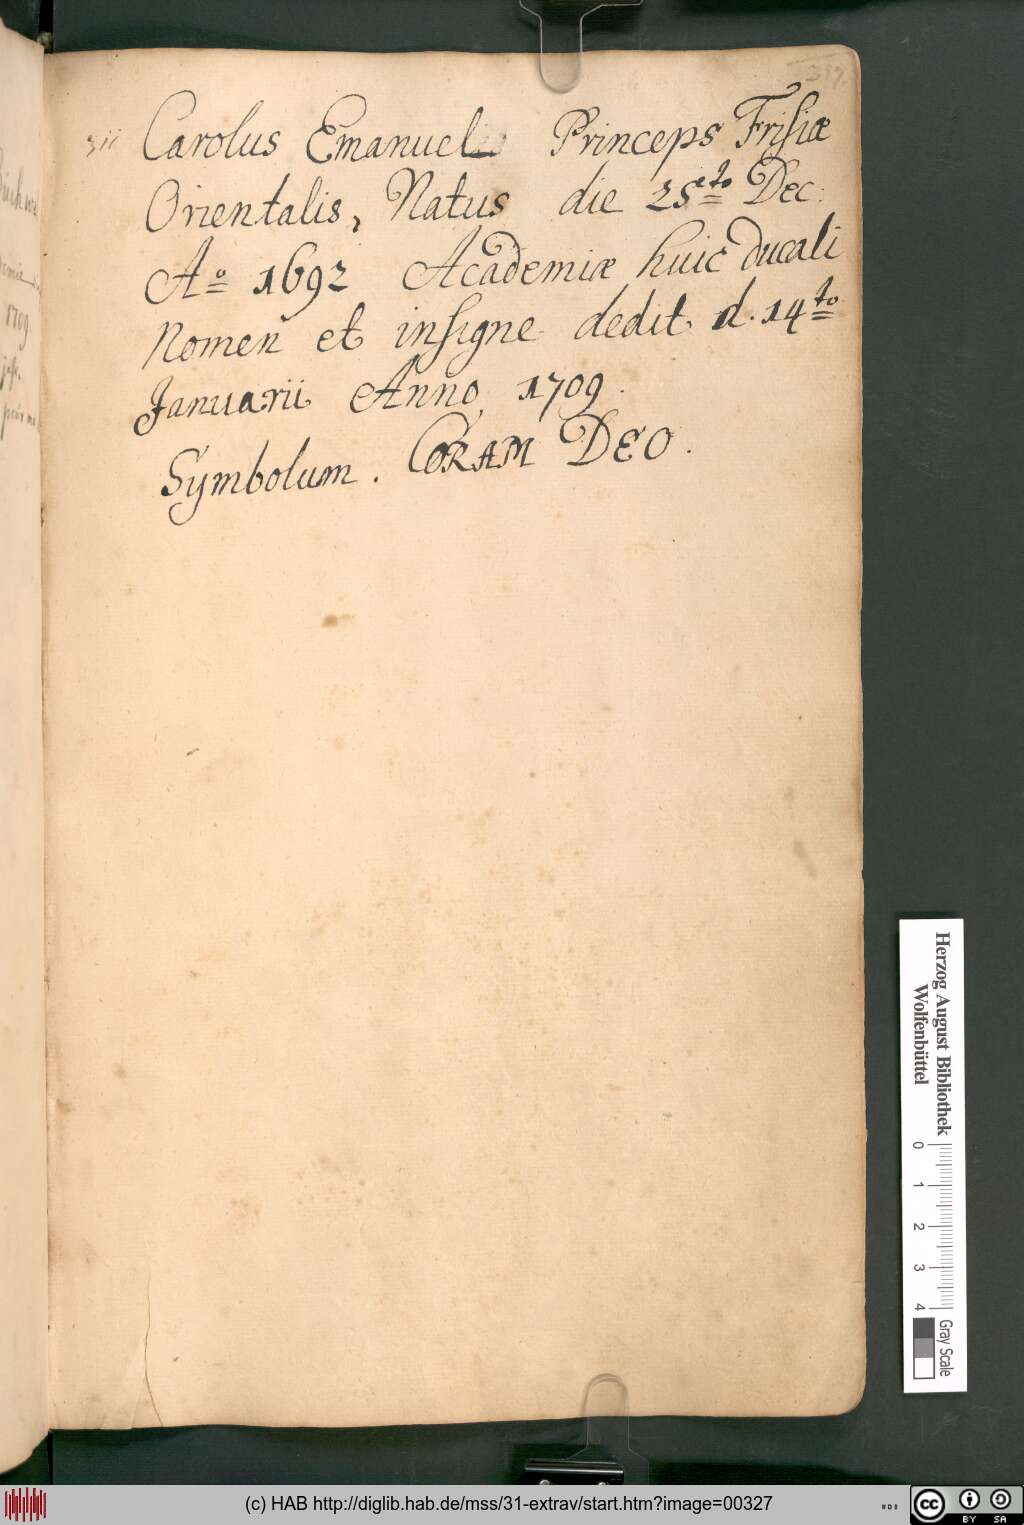 Carolus Emanuel Princeps Frisiæ
Orientalis, Natus die 25to Dec:
Ao 1692 Academiæ huic ducali
Nomen et insigne dedit d. 14to
Januarii Anno 1709.
Symbolum. CORAM DEO.
1709.
Herzog August Bibliothek
Wolfenbüttel
0 1 2 3 4
Gray Scale
(c) HAB http://diglib.hab.de/mss/31-extrav/start.htm?image=00327
cc BY SA